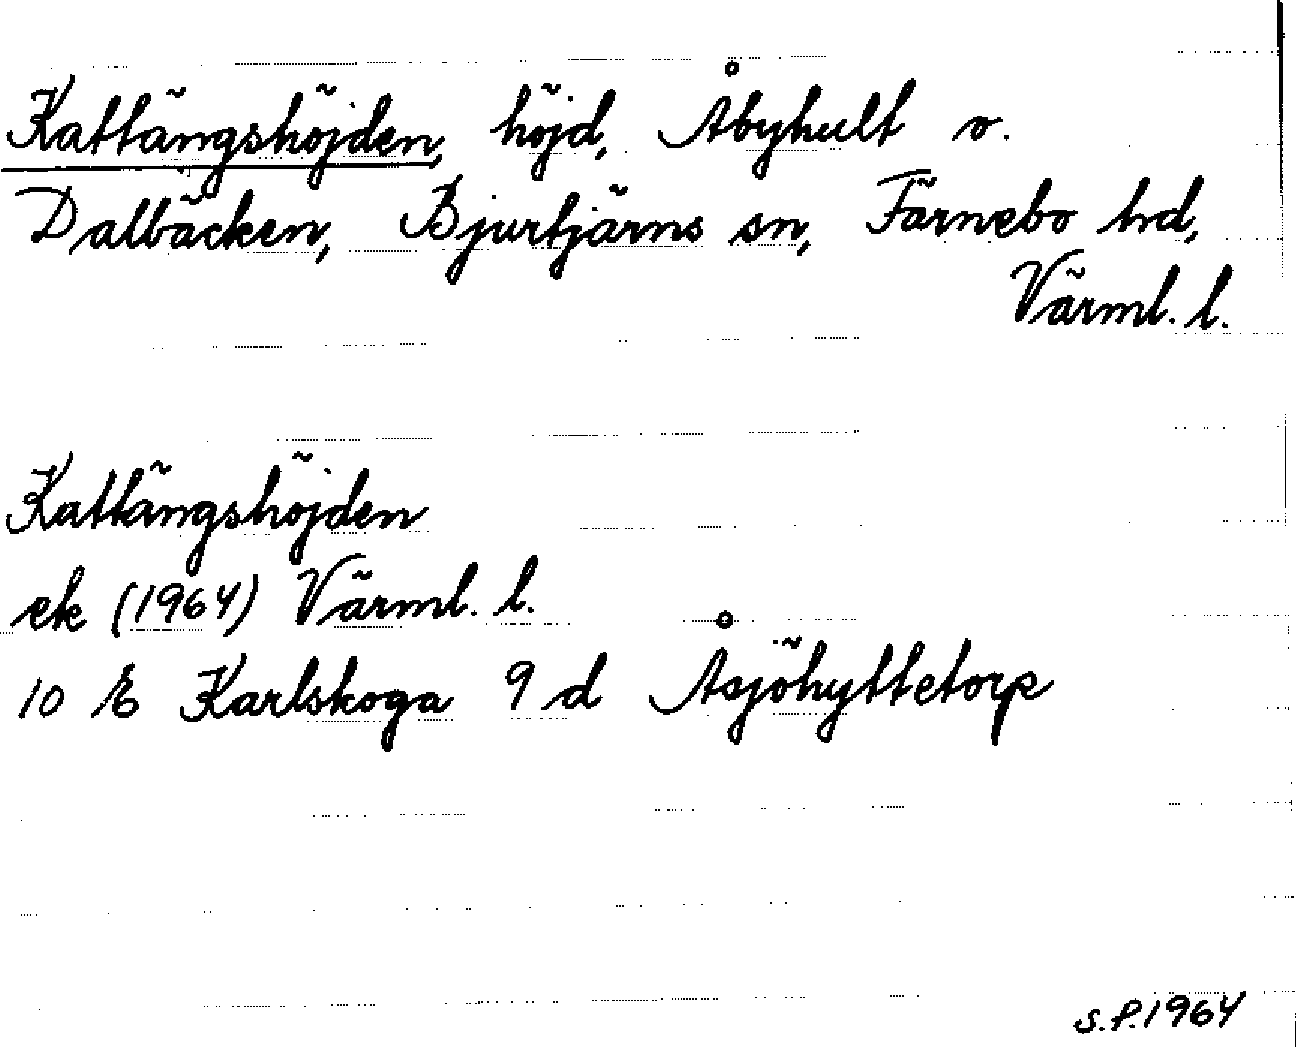 Kattängshöjden, höjd, Åbyhult o.
Dalbäcken, Bjurtjärns sn, Färnebo hd,
Värml. l.
Kattängshöjden
ek (1964) Värml. l.
10 E Karlskoga 9 d Åsjöhyttetorp
S.P. 1964